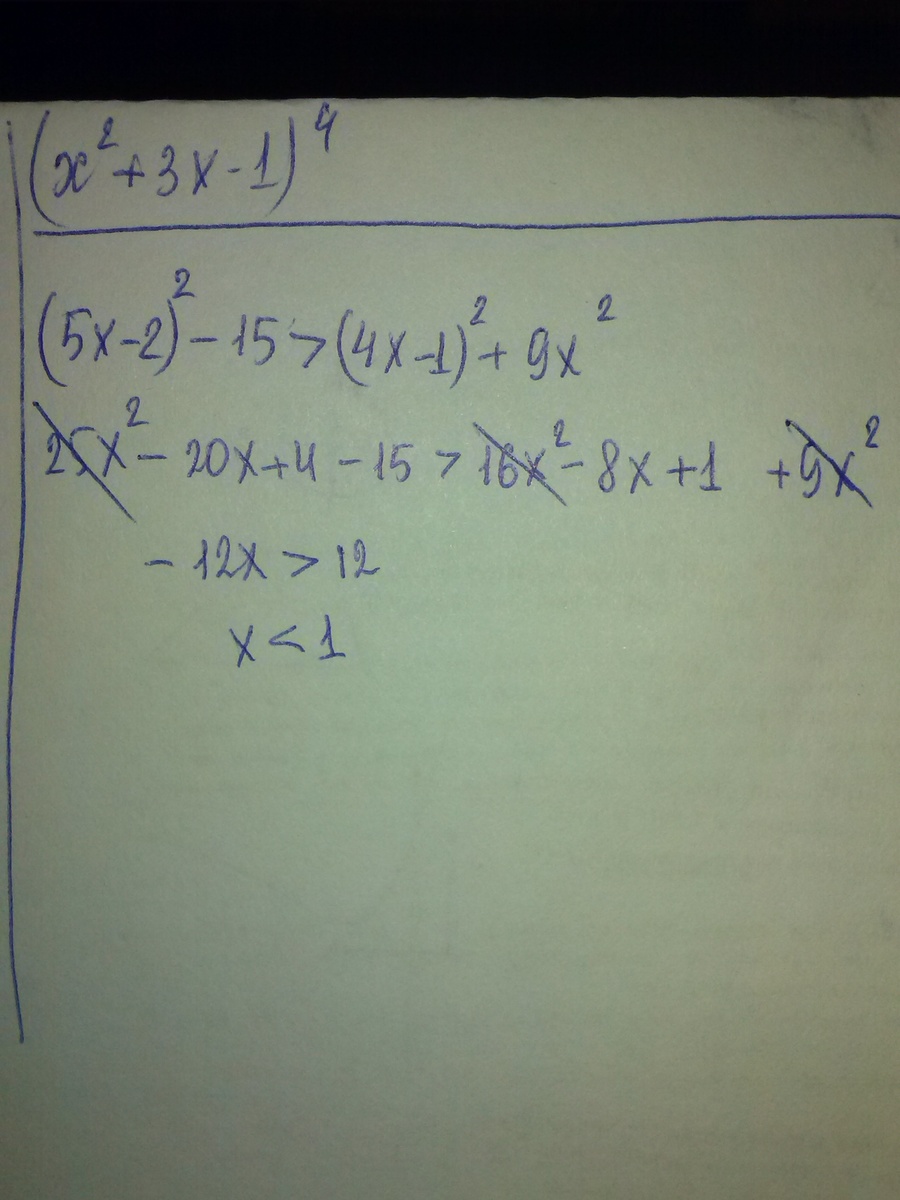 (x² + 3x - 1)⁴
(5x - 2)² - 15 > (4x - 1)² + 9x²
25x² - 20x + 4 - 15 > 16x² - 8x + 1 + 9x²
- 12x > 12
x < 1